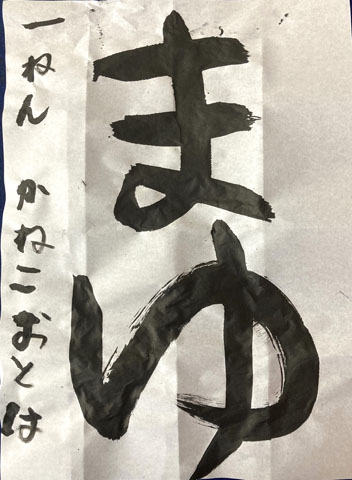 まゆ
一ねん かねこおとは